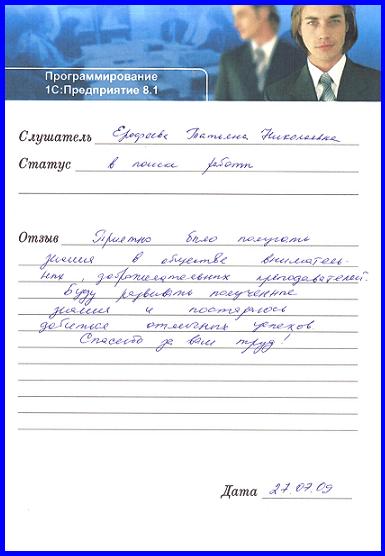 Программирование
1С:Предприятие 8.1
Слушатель Ерофеева Татьяна Николаевна
Статус в поиске работы
Отзыв Приятно было получать
знания в обществе вниматель-
ных, доброжелательных преподавателей.
Буду развивать полученные
знания и постараюсь
добиться отличных успехов
Спасибо за ваш труд!
Дата 27.07.09